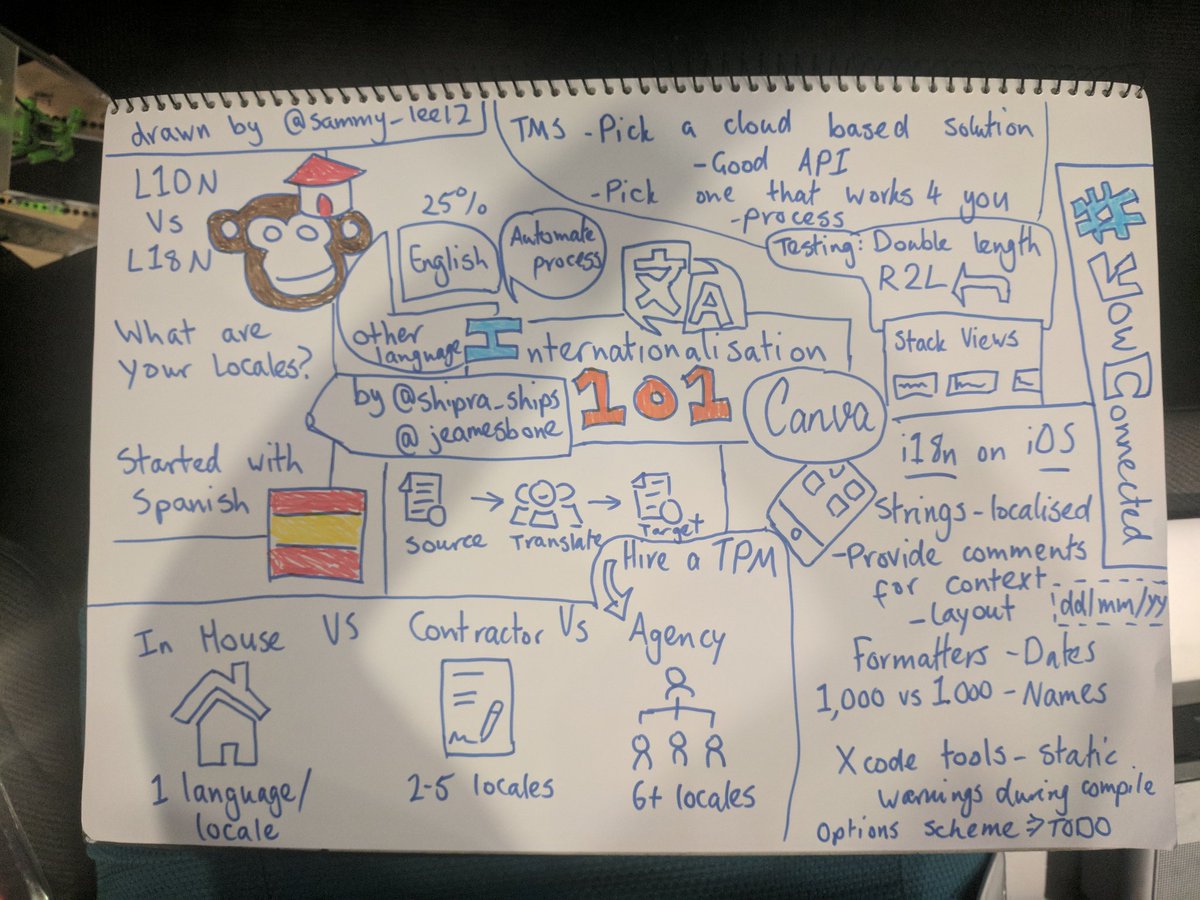 drawn by @sammy_lee12
L10N
Vs
L18N
What are
your Locales?
Started with
Spanish
25%
English
Automate
process
other
language
TMS -Pick a cloud based solution
-Good API
-Pick one that works 4 you
-process
Testing: Double length
R2L
Stack Views
文
A
Internationalisation
101
by @shipra_ships
@jeamesbone
Canva
Source
Translate
Target
Hire a TPM
In House VS Contractor Vs Agency
1 language/
locale
2-5 locales
6+ locales
i18n on iOS
Strings-localised
-Provide comments
for context
-Layout
dd/mm/yy
Formatters -Dates
1,000 vs 1.000 -Names
Xcode tools - static
warnings during compile
Options scheme => TODO
#WowConnected